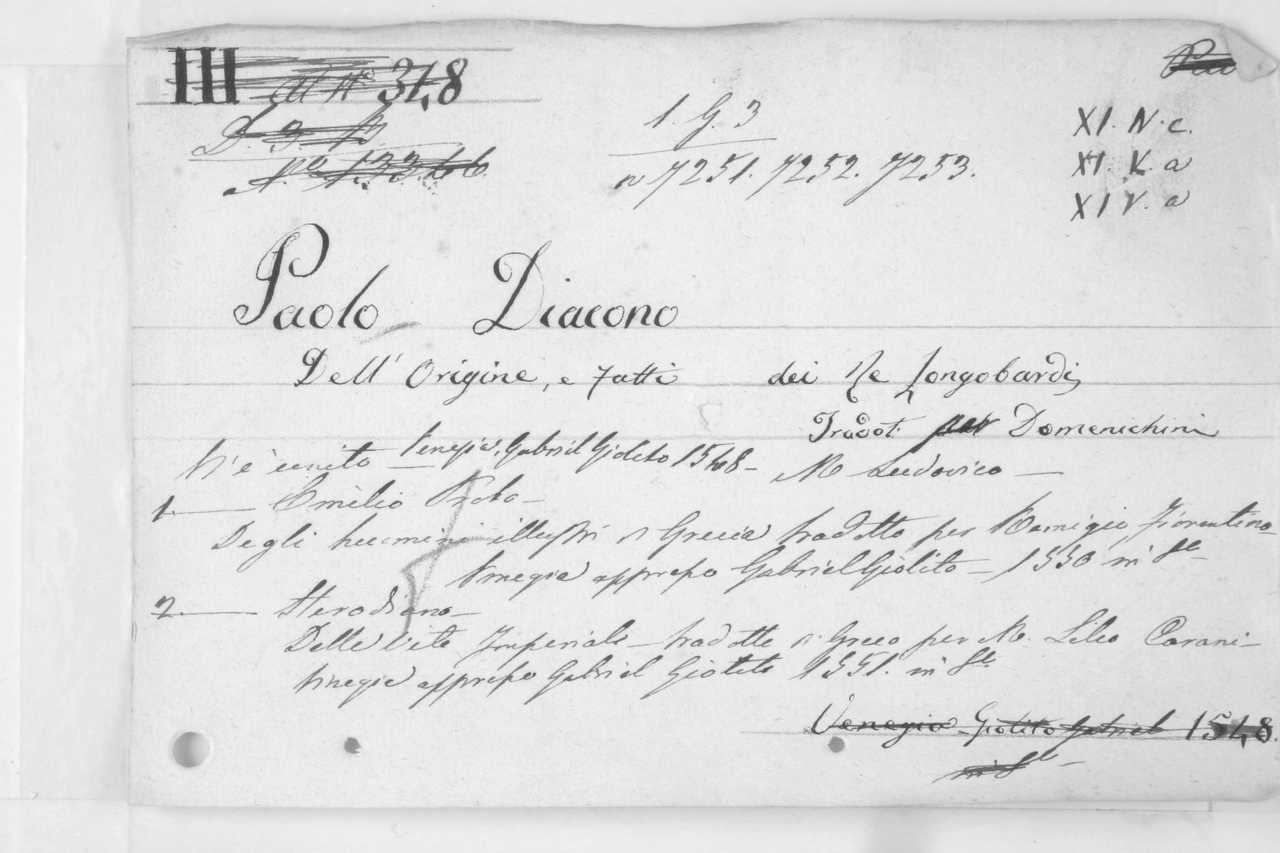 III 348
1. G. 3
n 7251. 7252. 7253.
XI. N. c.
XI. K. a
XI V. a
Paolo Diacono
Dell' Origine, e fatti dei Re Longobardi
Tradot. per Domenichini
M Ludovico
V'è unito Venegia, Gabriel Giolito 1548
1. Emilio Probo
Degli huomini illustri di Grecia tradotto per Remigio Fiorentino
Vinegia appresso Gabriel Giolito 1550 in 8°
2 Herodiano
Delle vite Imperiali tradotte di Greco per M. Lelio Carani
Vinegia appresso Gabriel Giolito 1551. in 8°
Venegia Giolito Gabriel 1548.
in 8°